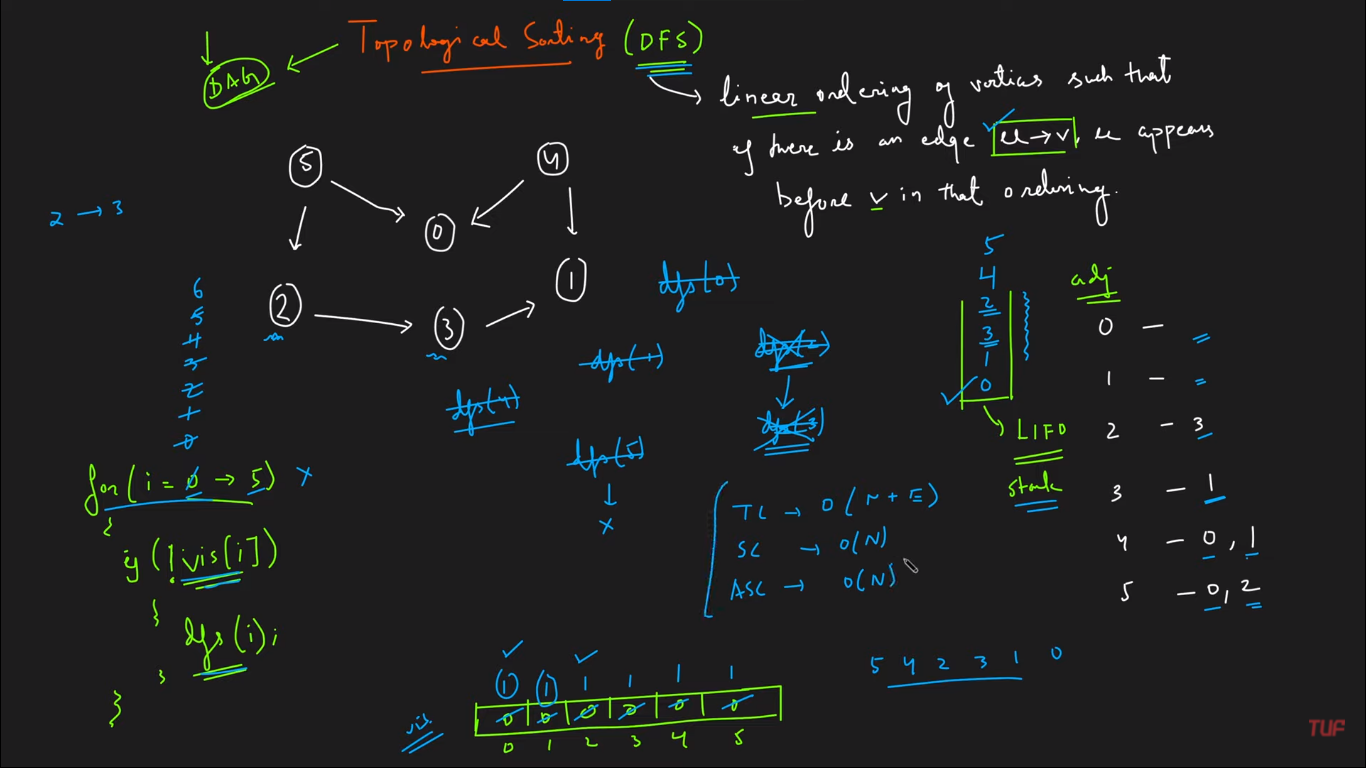 Topological Sorting (DFS)
DAG
linear ordering of vertices such that
if there is an edge u → v, u appears
before v in that ordering.
5
4
0
2
3
1
2 → 3
6
5
4
3
2
1
0
for(i = 0 → 5) x
{
if (!vis[i])
}
dfs(i);
}
}
dfs(0)
dfs(1)
dfs(2)
dfs(3)
dfs(4)
dfs(5)
x
5
4
2
3
1
0
LIFO
stack
adj
0 –
1 –
2 – 3
3 – 1
4 – 0, 1
5 – 0, 2
TC → O(N + E)
SC → O(N)
ASC → O(N)
5 4 2 3 1 0
1 1 1 1 1 1
0 0 0 0 0 0
vis
0 1 2 3 4 5
TUF